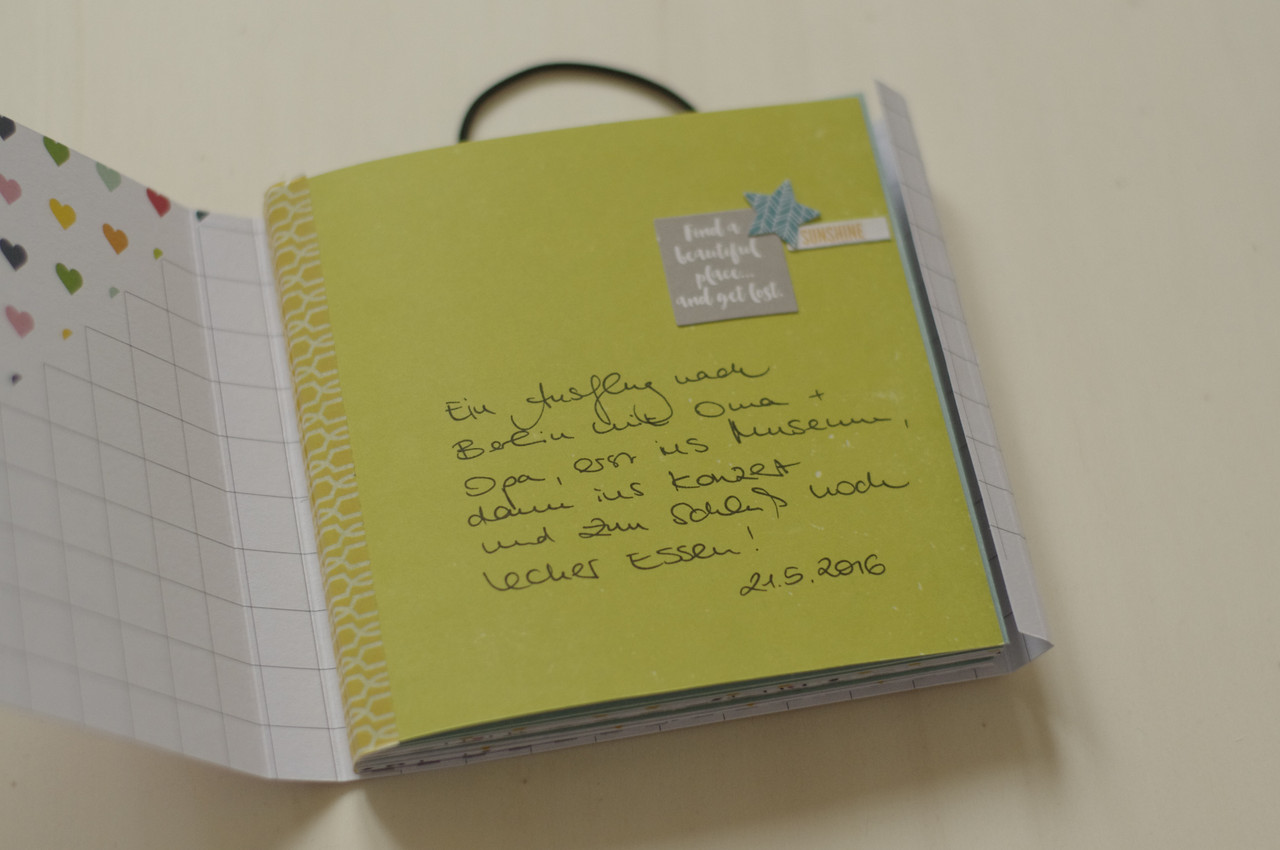 Find a
beautiful
place...
and get lost.
SUNSHINE
Ein Ausflug nach
Berlin mit Oma +
Opa, erst ins Museum,
dann ins Konzert
und zum Schluß noch
lecker Essen!
21.5.2016